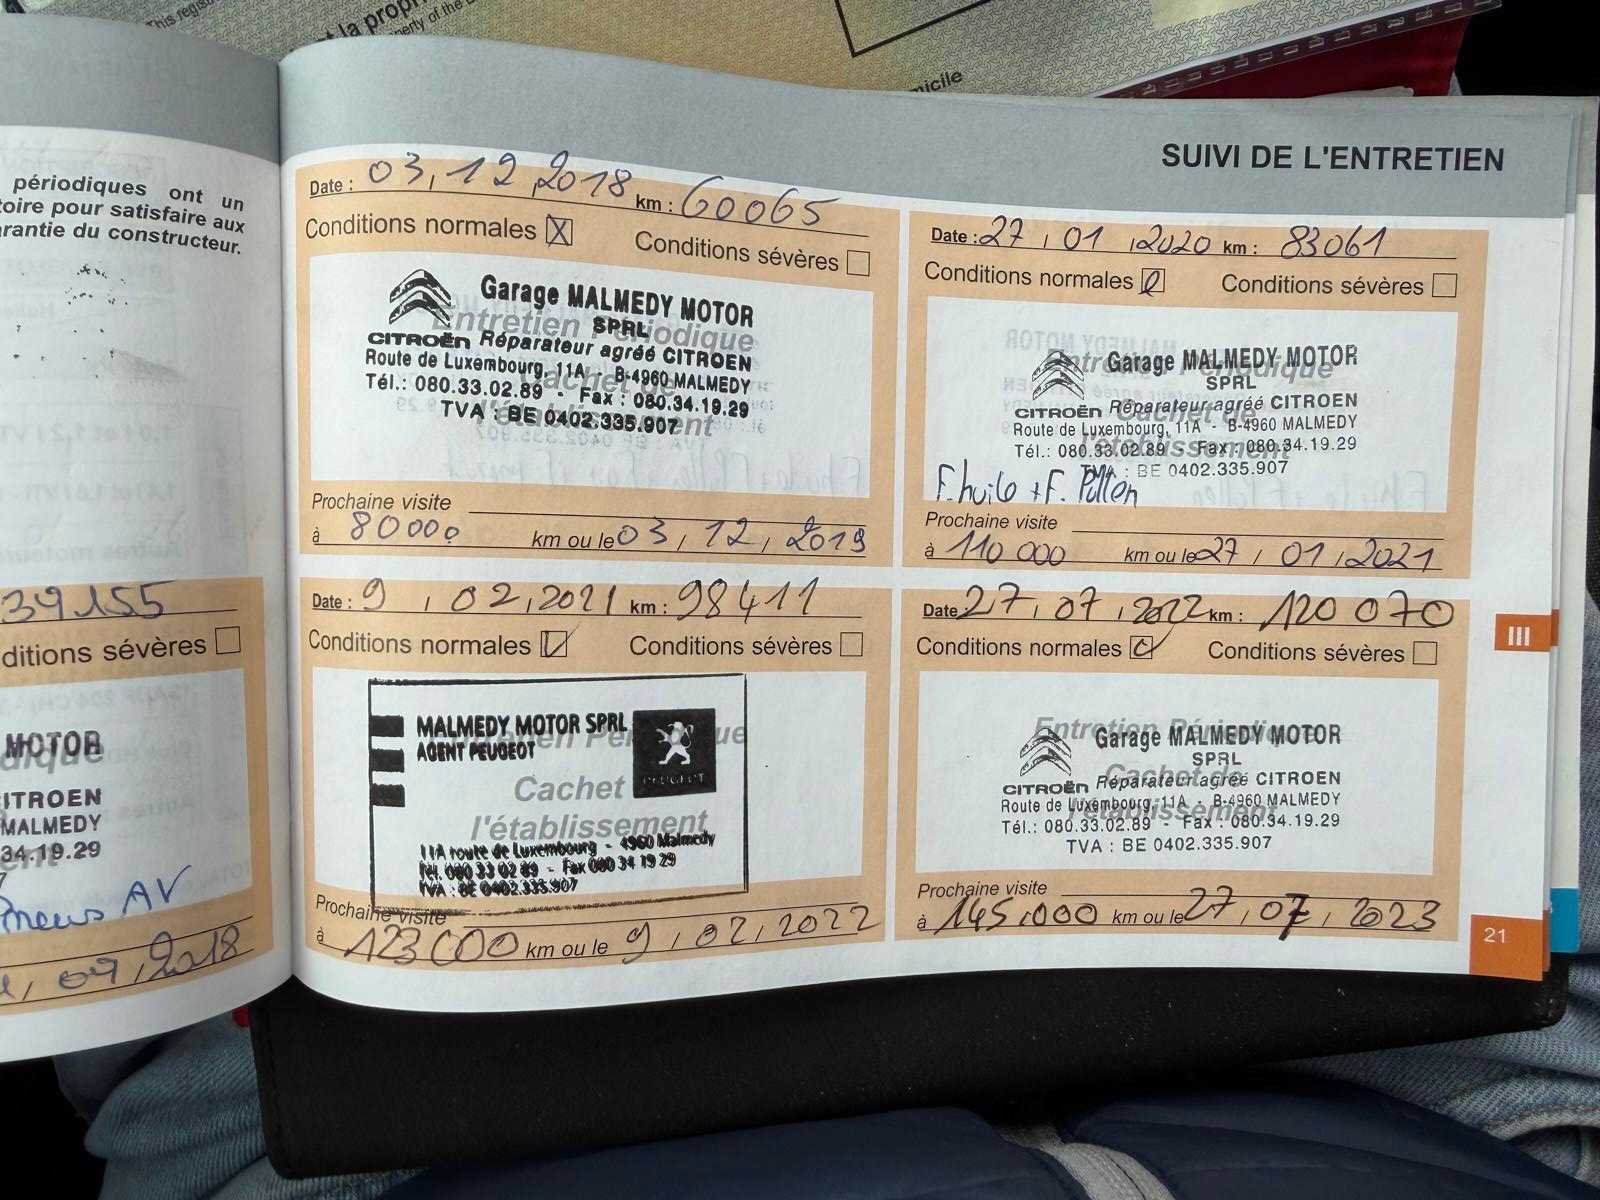 This regis
t la propri
perty of the
micile
périodiques ont un
toire pour satisfaire aux
arantie du constructeur.
39155
ditions sévères
MOTOR
ITROEN
MALMEDY
34.19.29
Pneus AV
04, 2018
SUIVI DE L'ENTRETIEN
Date : 03, 12, 2018 km : 60065
Conditions normales X Conditions sévères
Entretien Périodique
Cachet de
l'établissement
Garage MALMEDY MOTOR
SPRL
CITROËN Réparateur agréé CITROEN
Route de Luxembourg, 11A - B-4960 MALMEDY
Tél.: 080.33.02.89 - Fax : 080.34.19.29
TVA : BE 0402.335.907
Prochaine visite
à 80000 km ou le 03, 12, 2019
Date : 27, 01, 2020 km : 83061
Conditions normales Conditions sévères
Entretien Périodique
Cachet de
l'établissement
Garage MALMEDY MOTOR
SPRL
CITROËN Réparateur agréé CITROEN
Route de Luxembourg, 11A - B-4960 MALMEDY
Tél.: 080.33.02.89 Fax : 080.34.19.29
TVA : BE 0402.335.907
F. huile + F. Pollen
Prochaine visite
à 110 000 km ou le 27, 01, 2021
Date : 9, 02, 2021 km : 98411
Conditions normales Conditions sévères
Entretien Périodique
Cachet
l'établissement
MALMEDY MOTOR SPRL
AGENT PEUGEOT
PEUGEOT
11A route de Luxembourg - 4960 Malmedy
Tél. 080 33 02 89 - Fax 080 34 19 29
TVA : BE 0402.335.907
Prochaine visite
à 123 000 km ou le 9, 02, 2022
Date 27, 07, 2022 km : 120 070
Conditions normales Conditions sévères
Entretien Périodique
Cachet de
l'établissement
Garage MALMEDY MOTOR
SPRL
CITROËN Réparateur agréé CITROEN
Route de Luxembourg, 11A - B-4960 MALMEDY
Tél.: 080.33.02.89 - Fax : 080.34.19.29
TVA : BE 0402.335.907
Prochaine visite
à 145.000 km ou le 27, 07, 2023
III
21